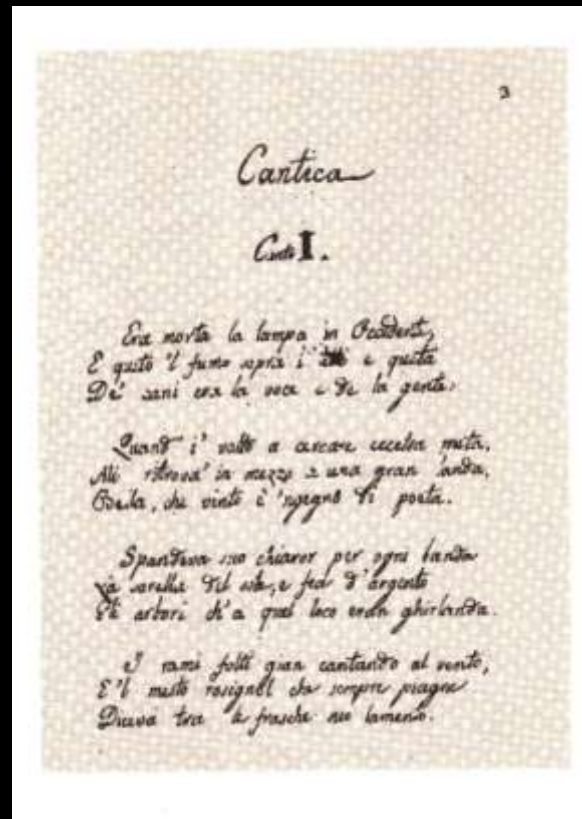 3
Cantica
Canto I.
Era morta la lampa in Occidente,
E queto 'l fumo sopra i e queta
De' cani era la voce e de la gente:
Quand' i' volto a cercare eccelsa meta,
Mi ritrova' in mezzo a una gran landa,
Bella, che vinto è 'ngegno di poeta.
Spandeva suo chiaror per ogni banda
La sorella del sole, e fea d'argento
Gli arbori ch'a quel loco eran ghirlanda.
I rami folti gian cantando al vento,
E 'l mesto rosignol che sempre piagne
Diceva tra le frasche suo lamento.